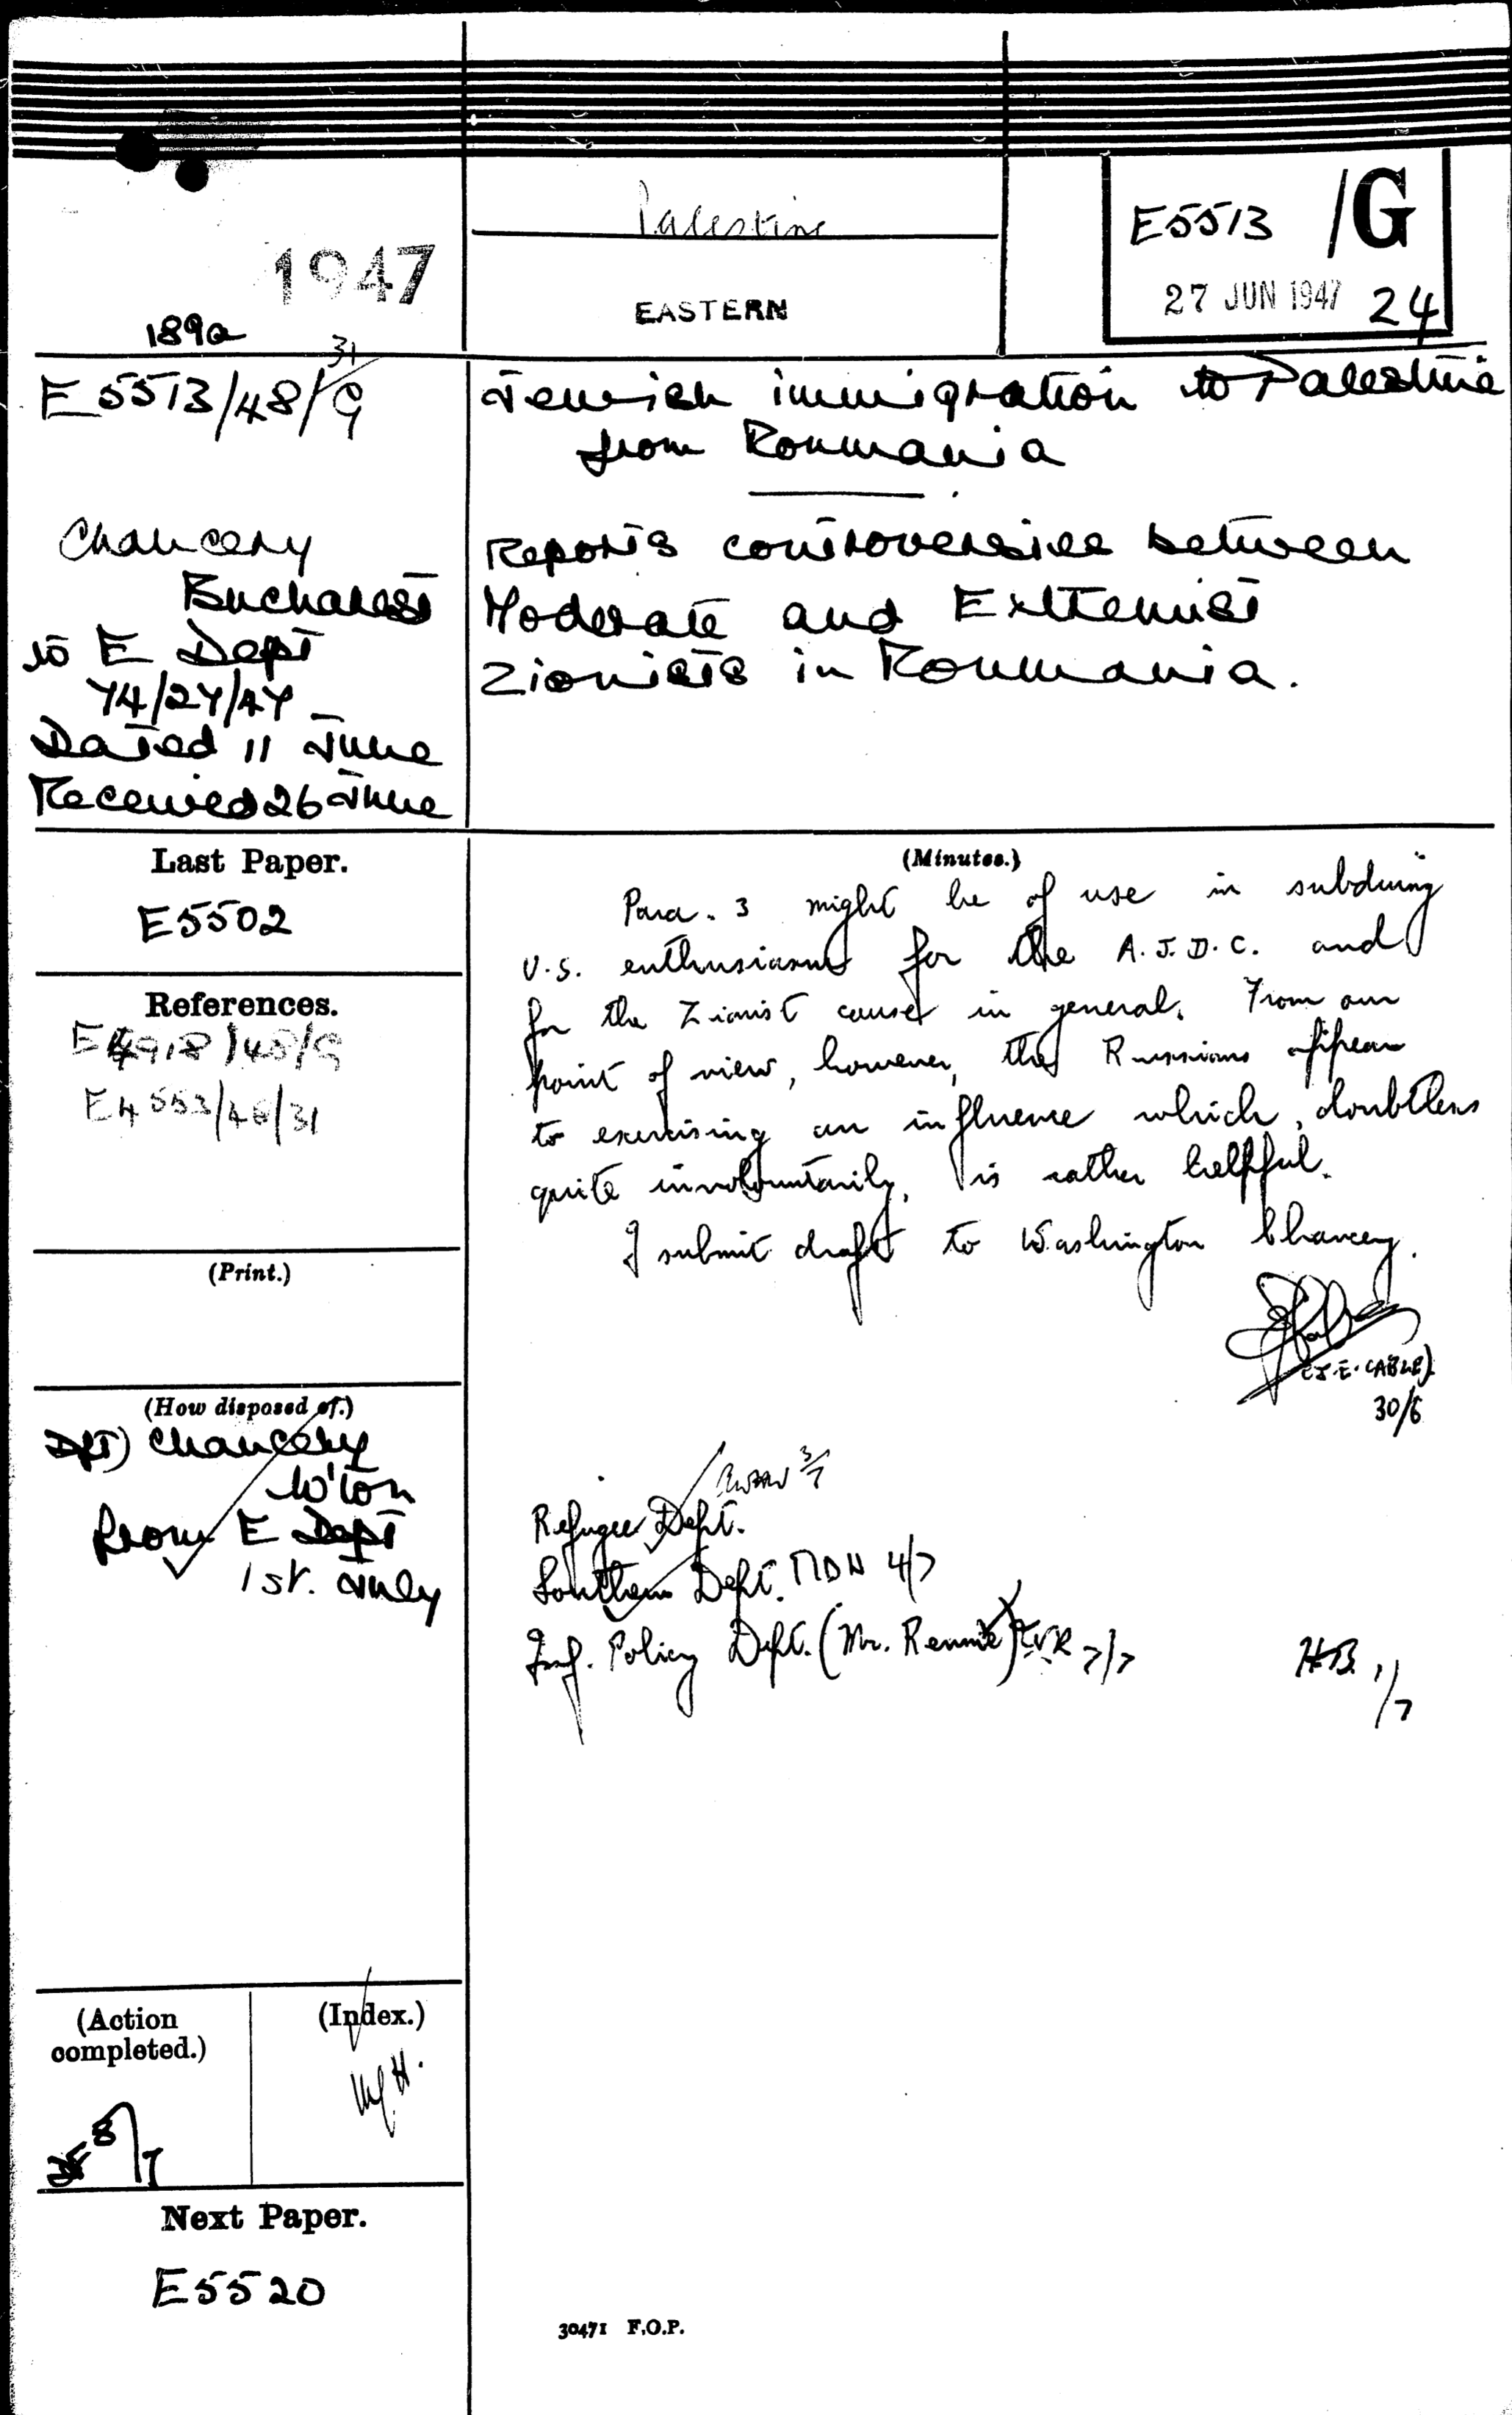 1947
189a
Palestine
EASTERN
E5513 /G
27 JUN 1947 24
E 5513/48/G
31
Chancery
Bucharest
to E Dept
74/27/47
Dated 11 June
Received 26 June
Jewish immigration to Palestine
from Roumania
Reports controversies between
Moderate and Extremist
Zionists in Roumania.
Last Paper.
E5502
References.
E4918/48/G
E4553/48/31
(Print.)
(How disposed of.)
Dft) Chancery
W'ton
from E Dept
1st. July
(Action
completed.)
8/7
(Index.)
Next Paper.
E5520
(Minutes.)
Para. 3 might be of use in subduing
U.S. enthusiasm for the A.J.D.C. and
for the Zionist cause in general. From our
point of view, however, the Russians appear
to exercising an influence which, doubtless
quite involuntarily, is rather helpful.
I submit draft to Washington Chancery.
(J.E. CABLE)
30/6
3/7
Refugee Dept.
Southern Dept. MDH 4/7
Inf. Policy Dept. (Mr. Rennie) 7/7
H.B. 1/7
30471 F.O.P.